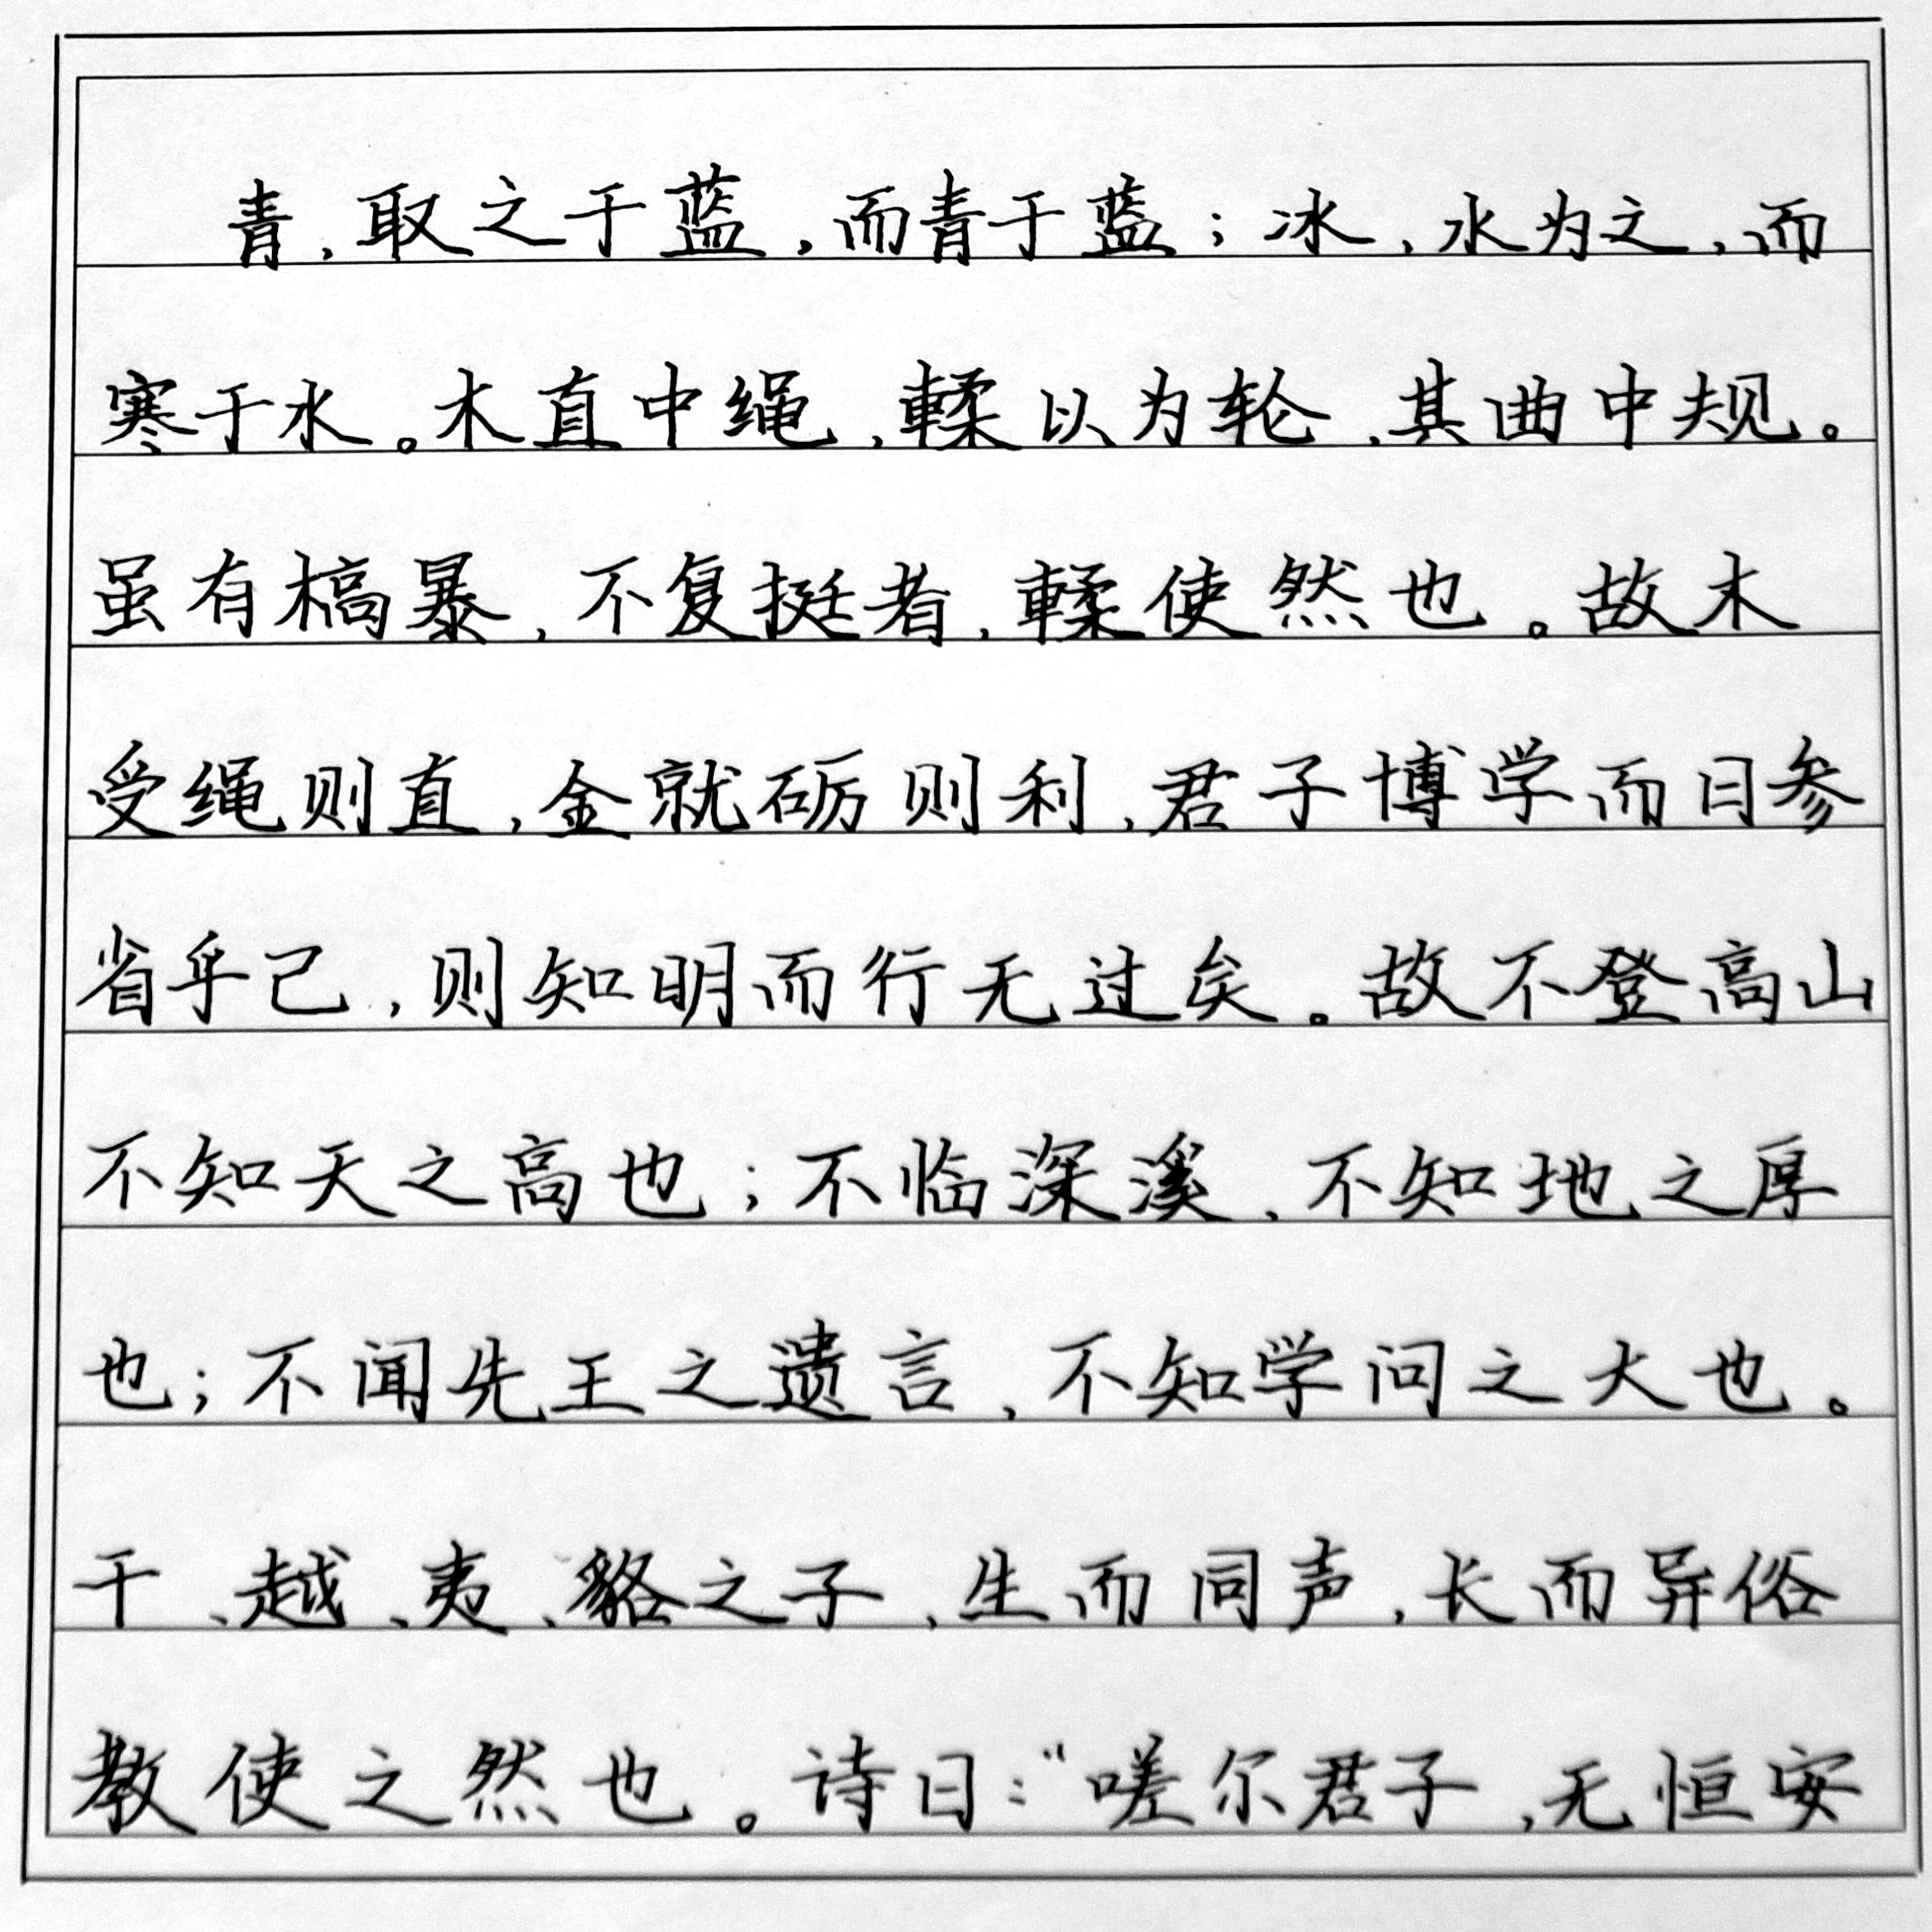 青，取之于蓝，而青于蓝；冰，水为之，而
寒于水。木直中绳，輮以为轮，其曲中规。
虽有槁暴，不复挺者，輮使然也。故木
受绳则直，金就砺则利，君子博学而日参
省乎己，则知明而行无过矣。故不登高山
不知天之高也；不临深溪，不知地之厚
也；不闻先王之遗言，不知学问之大也。
干、越、夷、貉之子，生而同声，长而异俗
教使之然也。诗曰：“嗟尔君子，无恒安